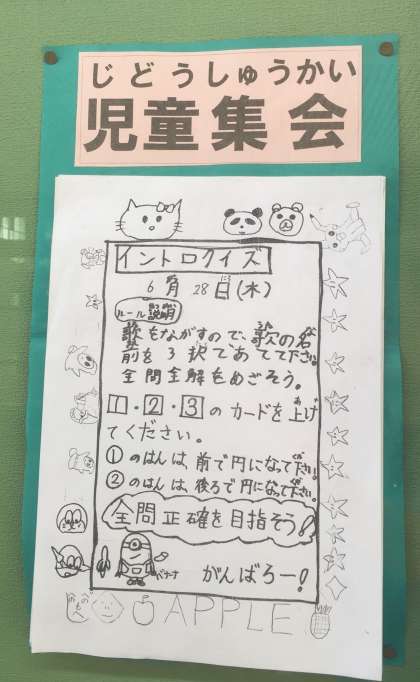 じどうしゅうかい
児童集会
イントロクイズ
6月28日(木)
ルール説明
歌をながすので、歌の名
前を3択であてて下さい。
全問全解をめざそう。
1・2・3のカードを上げ
てください。
①のはんは、前で円になって下さい。
②のはんは、後ろで円になって下さい。
全問正確を目指そう!
がんばろー!
バナナ
APPLE